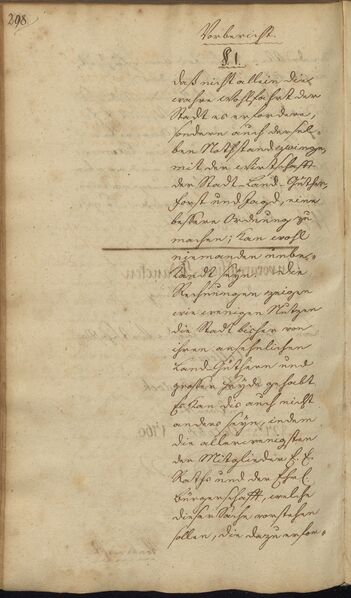 298
Vorbericht.
§. 1.
Daß nicht allein die
wahre Wohlfahrt der
Stadt es erfordere,
sondern auch dersel-
ben Nothstand zwinge,
mit der Wirthschafft
der Stadt-Land-Güther,
Forst und Jagd, eine
bessere Ordnung zu
machen; kan wohl
niemanden unbe-
kandt seyn. Die
Rechnungen zeigen
wie wenigen Nutzen
die Stadt bisher von
ihren ansehnlichen
Land Güthern und
großer Heyde gehabt
Es kan dis auch nicht
anders seyn, indem
die allerwenigsten
der Mitglieder E. E.
Raths und der Ehrl.
Bürgerschafft, welche
dieser Sache vorstehen
sollen, die dazu erfor-